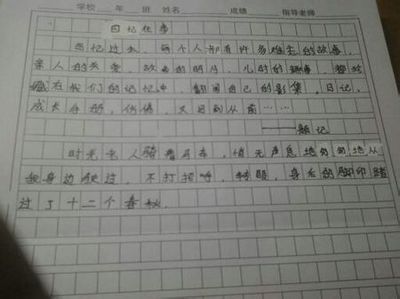 学校 年 班 姓名 成绩 指导老师
回忆往事
回忆过去，每个人都有许多难忘的故事，
亲人的关爱，故乡的明月，儿时的趣事，都珍
藏在我们的记忆中，翻阅自己的影集，日记，
成长手册，仿佛，又回到从前……
——题记
时光老人骑着马车，悄无声息地匆匆地从
我身边驶过，不打招呼，转眼，身后的脚印踏
过了十二个春秋。